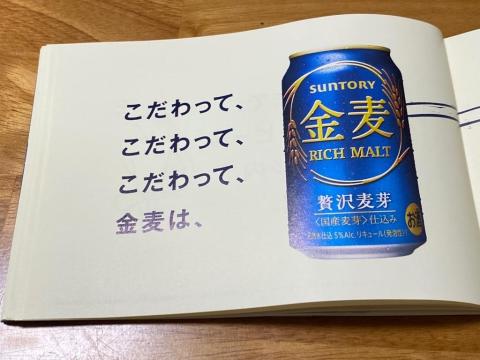 こだわって、
こだわって、
こだわって、
金麦は、
SUNTORY
金麦
RICH MALT
贅沢麦芽
〈国産麦芽〉仕込み
天然水仕込 5%Alc. リキュール(発泡性)①
お酒